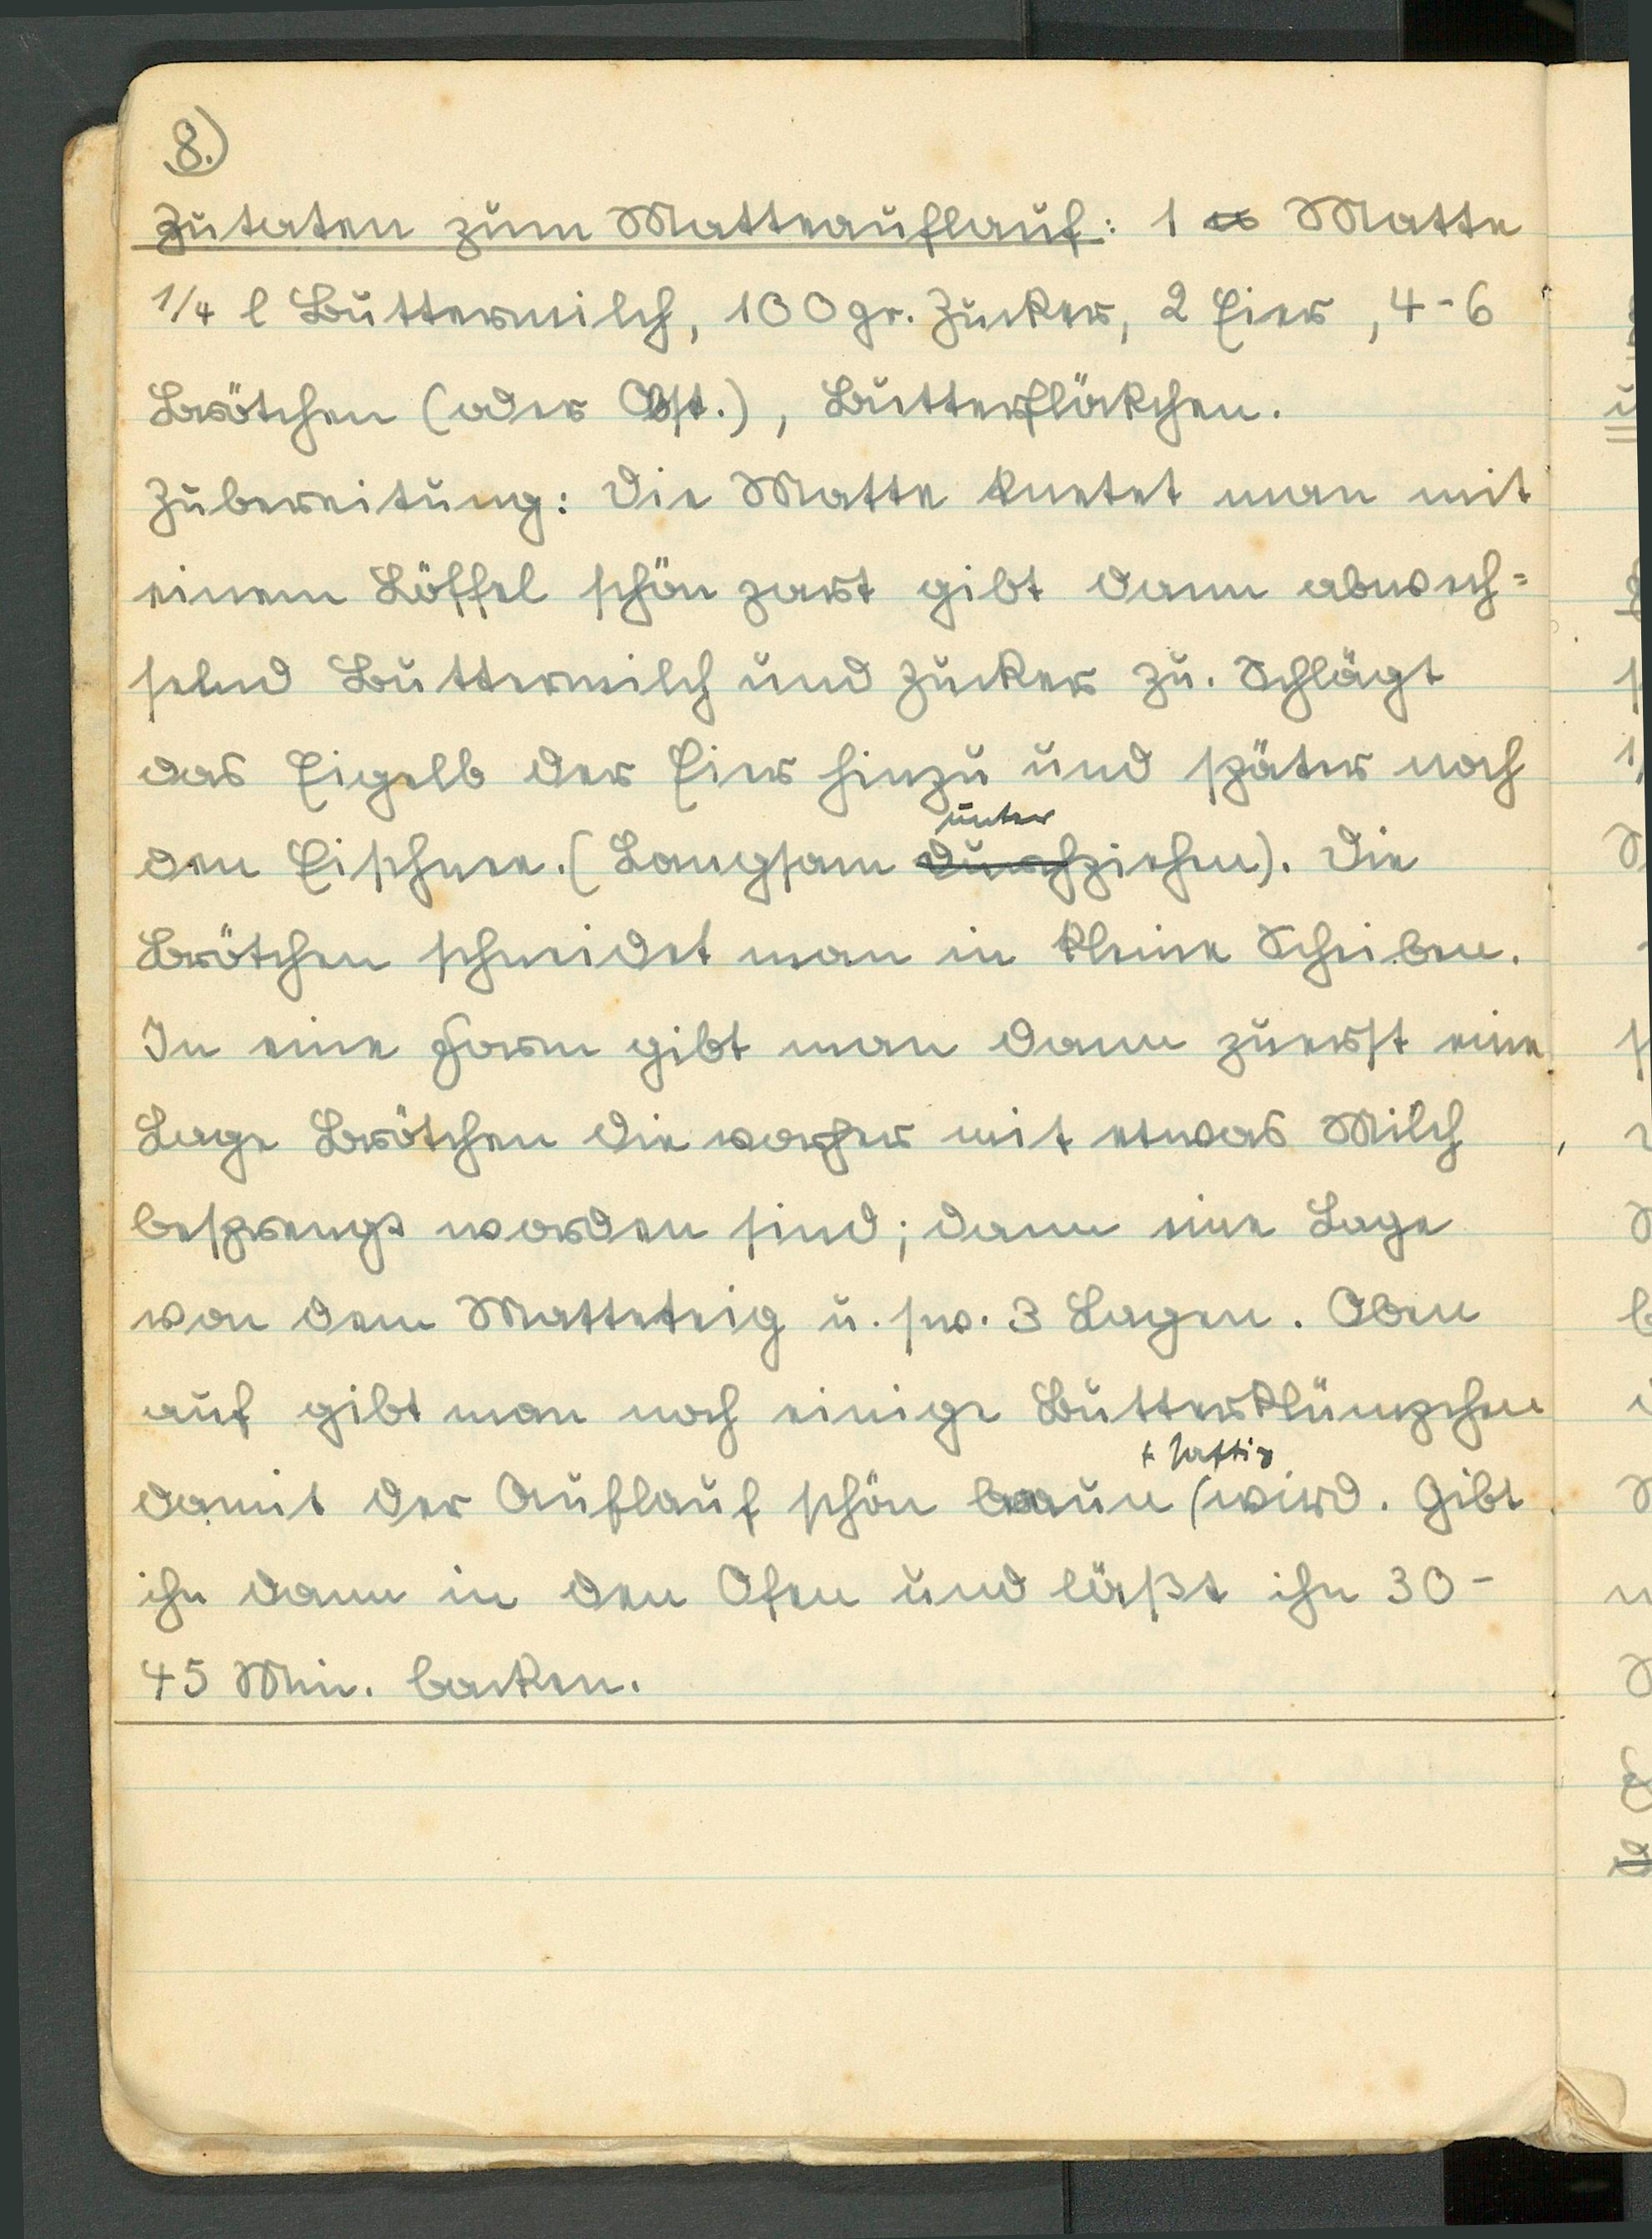 8.)
Zutaten zum Matteauflauf: 1 ℔ Matte
1/4 l Buttermilch, 100 gr. Zucker, 2 Eier, 4-6
Brötchen (oder Obst.), Butterflökchen.
Zubereitung: Die Matte knetet man mit
einem Löffel schön zart gibt dann abwech=
selnd Buttermilch und Zucker zu. Schlägt
das Eigelb der Eier hinzu und später noch
unter
den Eischnee. (Langsam durchziehen). Die
Brötchen schneidet man in kleine Scheiben.
In eine Form gibt man dann zuerst eine
Lage Brötchen die vorher mit etwas Milch
besprengt worden sind; dann eine Lage
von dem Matteteig u. sw. 3 Lagen. Oben
auf gibt man noch einige Butterklümpchen
+ saftig
damit der Auflauf schön braun (wird. Gibt
ihn dann in den Ofen und läßt ihn 30-
45 Min. backen.